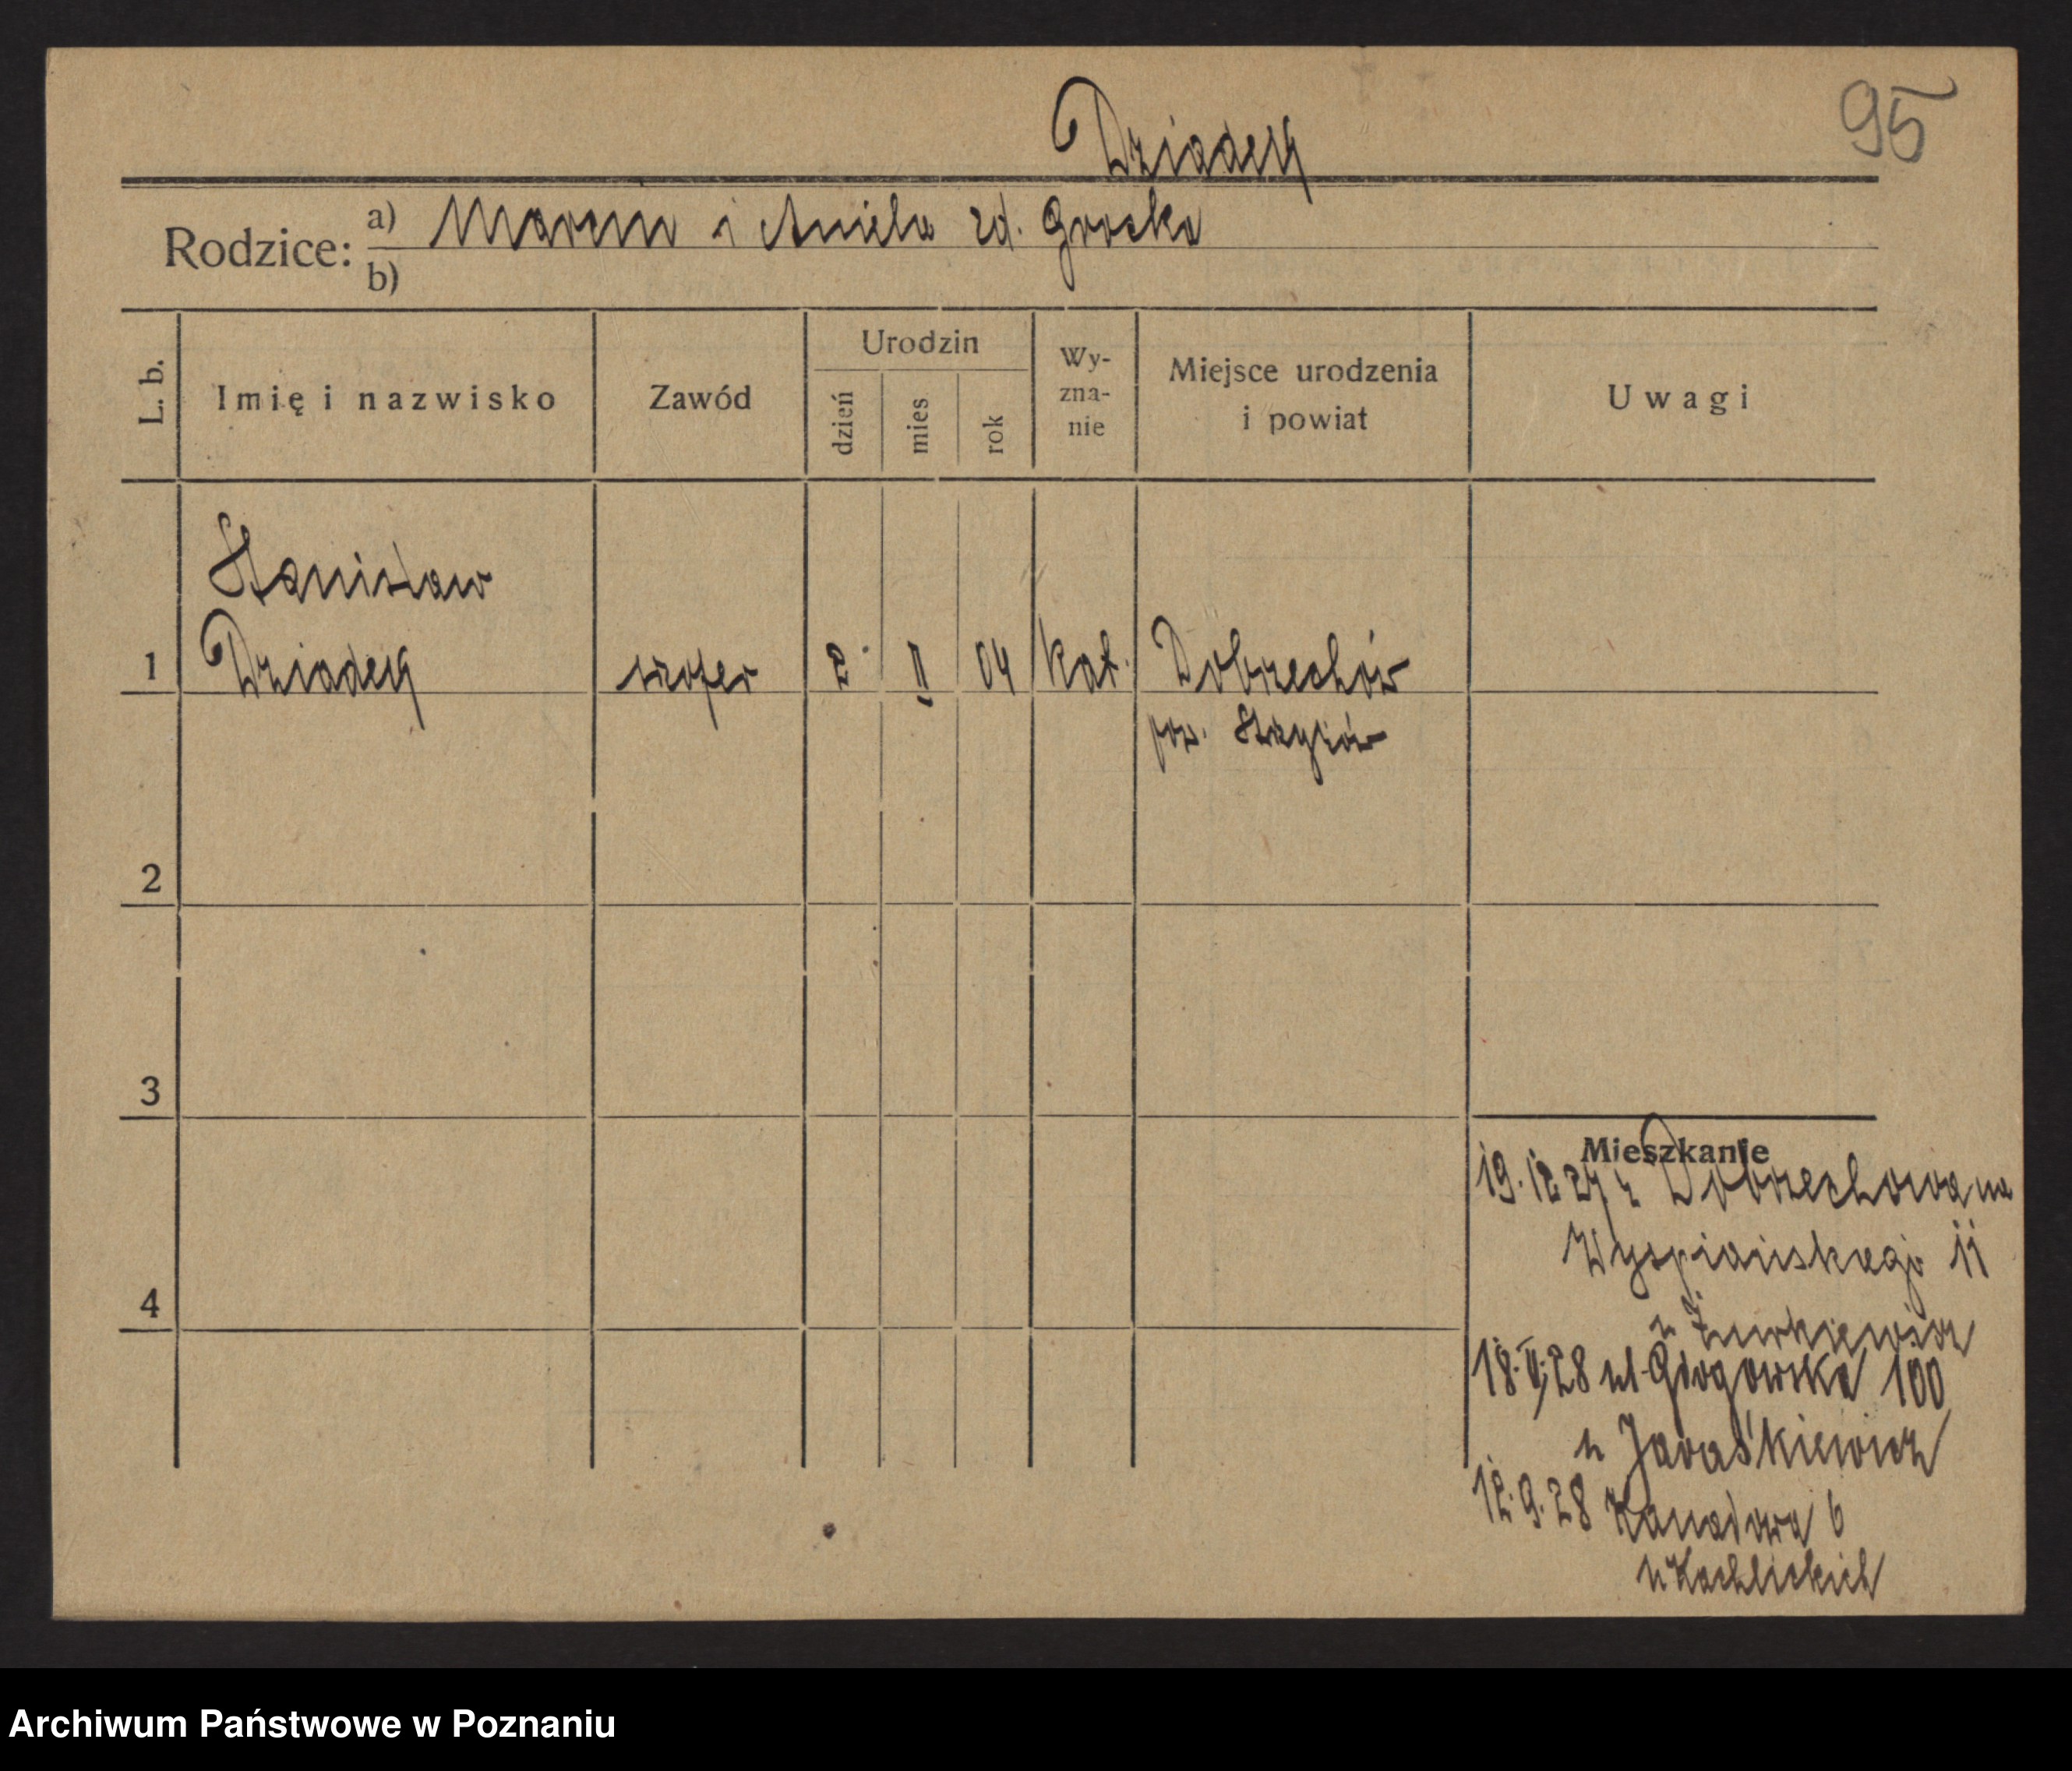 95
Dziadek
Rodzice: a) Marcin i Aniela zd. Groska
b)
L. b. Imię i nazwisko Zawód Urodzin dzień mies rok Wy-zna-nie Miejsce urodzenia i powiat Uwagi
Stanisław
1 Dziadek szofer 2 II 04 kat. Dobrzechów
pow. Strzyżów
2
3
Mieszkanie
19.12 27 z Dobrzechowa na
Wyspiańskiego 11
4
u Żurkiewicz
18.V.28 ul. Głogowska 100
u Jaraśkiewicz
12.9.28 6
u Kachlickich
Archiwum Państwowe w Poznaniu